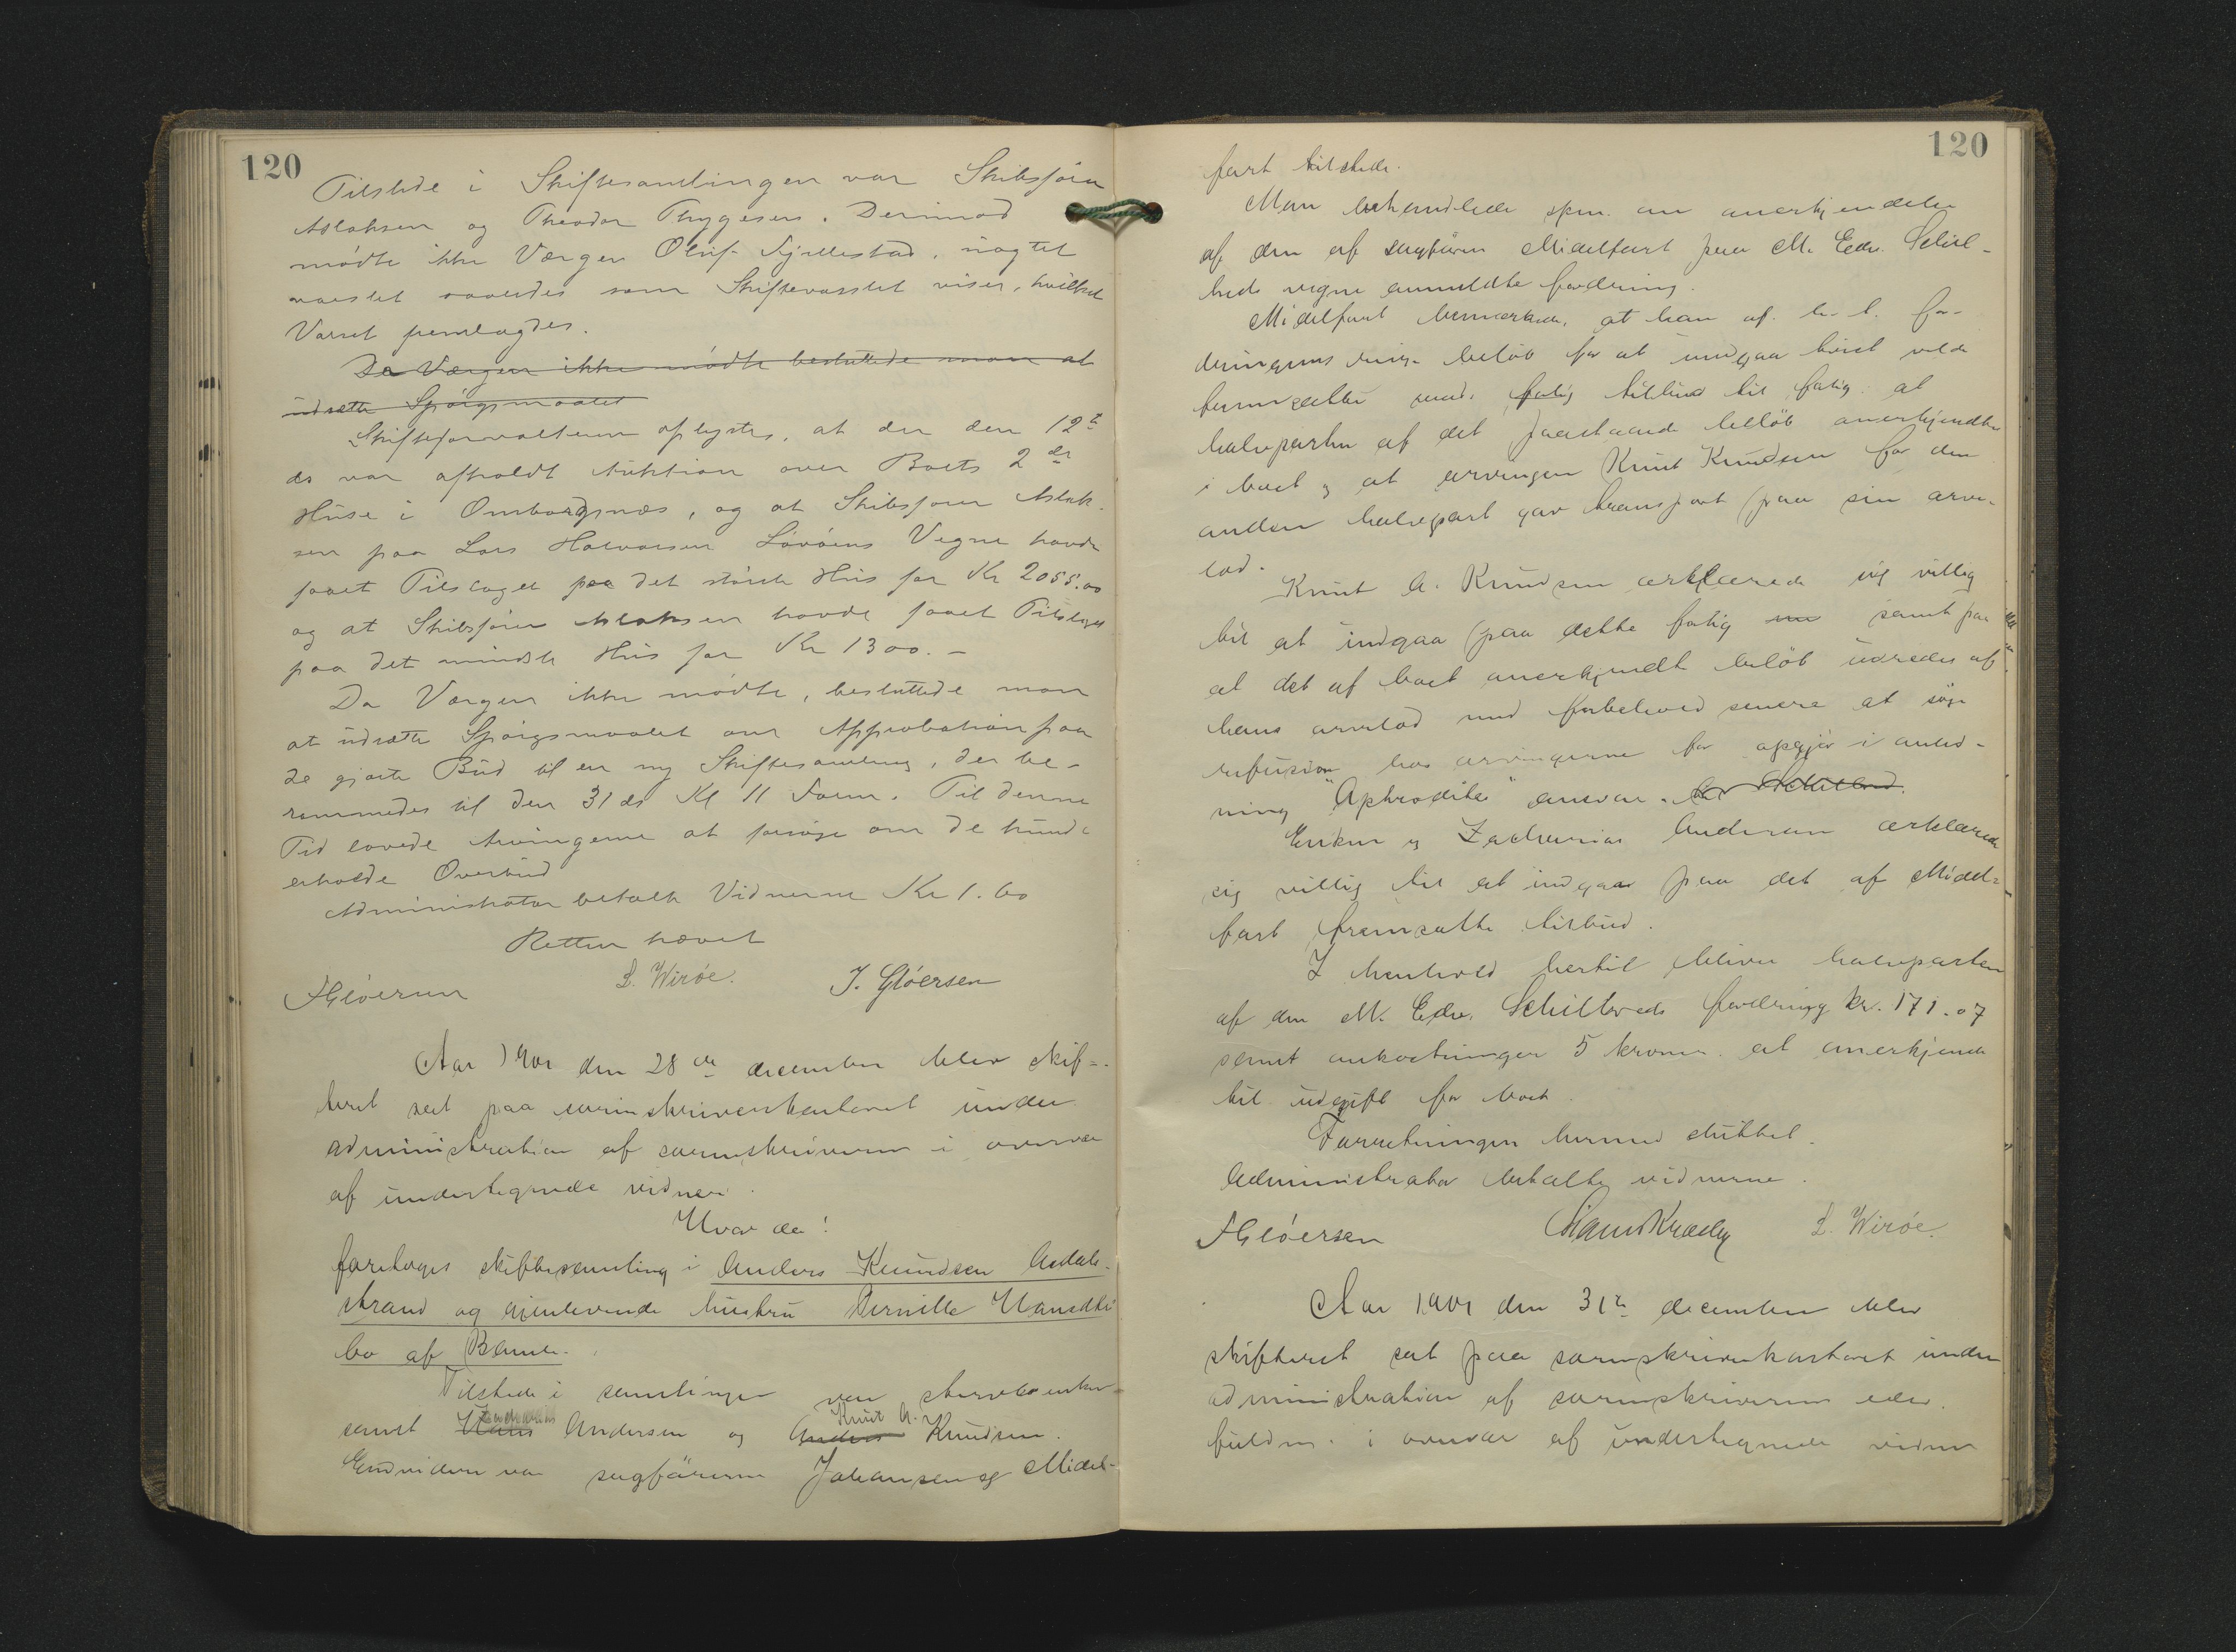 120
Tilstede i Skiftesamlingen var Skibsfører
Aslaksen og Theodor Thygesen. Derimod
mødte ikke Værgen Oluf Fjellestad, uagtet
varslet saaledes som Skiftevarslet viser, hvilket
Varsel fremlagdes.
Da Værgen ikke mødte besluttede man at
udsætte Spørgsmaalet
Skifteforvalteren oplyste, at der den 12te
ds var afholdt Auktion over Boets 2de
Huse i Omborgsnæs, og at Skibsfører Aslak-
sen paa Lars Halvorsen Løvøens Vegne havde
faaet Tilslaget paa det største Hus for Kr 2055.00
og at Skibsfører Aslaksen havde faaet Tilslaget
paa det mindste Hus for Kr 1300.-
Da Værgen ikke mødte, besluttede man
at udsætte Spørgsmaalet om Approbation paa
de gjorte Bud til en ny Skiftesamling, der be-
rammedes til den 31 ds Kl 11 Form. Til denne
Tid lovede Arvingerne at forsøge om de kunde
erholde Overbud
Administrator betalte Vidnerne Kr 1.60
Retten hævet
HGløersen L. Wirøe. J. Gløersen
Aar 1901 den 28de december blev skif-
teret sat paa sorenskriverkontoret under
administration af sorenskriveren i overvær
af undertegnede vidner.
Hvor da!
foretoges skiftesamling i Anders Knudsen Aasdals-
strand og gjenlevende hustru Pernille Hansdtr
bo af Bamle.
Tilstede i samlingen var sterboenken
samt Hans Zacharias Andersen og Anders Knut A. Knudsen.
Endvidere var sagførerne Johansen og Midel-
120
fart tilstede.
Man behandlede spm. om anerkjendelse
af den af sagfører Midelfart paa M. Edv. Schil-
breds vegne anmeldte fordring.
Midelfart bemærkede, at han af h. t. for-
dringens ringe beløb for at undgaa tvist vilde
fremsætte mindelig tilbud til forlig: at
halvparten af det paastaaede beløb anerkjendtes
i boet og at arvingen Knut Knudsen for den
anden halvpart gav transport paa sin arve-
lod.
Knut A. Knudsen erklærede sig villig
til at indgaa paa dette forlig samt paa
at det af boet anerkjendt beløb udredes af
hans arvelod med forbehold senere at søge
refusion hos arvingerne for opgjør i anled-
ning "Aphrodites" ansvar.
Enken og Zacharias Andersen erklærede
sig villig til at indgaa paa det af Midel-
fart fremsatte tilbud.
I henhold hertil bliver halvparten
af den M. Edv. Schilbreds fordring kr. 171.07
samt omkostninger 5 kroner at anerkjende
til udgift for boet.
Forretningen hermed sluttet.
Administrator betalte vidnerne.
HGløersen L. Wirøe.
Aar 1901 den 31te december blev
skifteret sat paa sorenskriverkontoret under
administration af sorenskriveren ved
fuldm. i overvær af undertegnede vidner